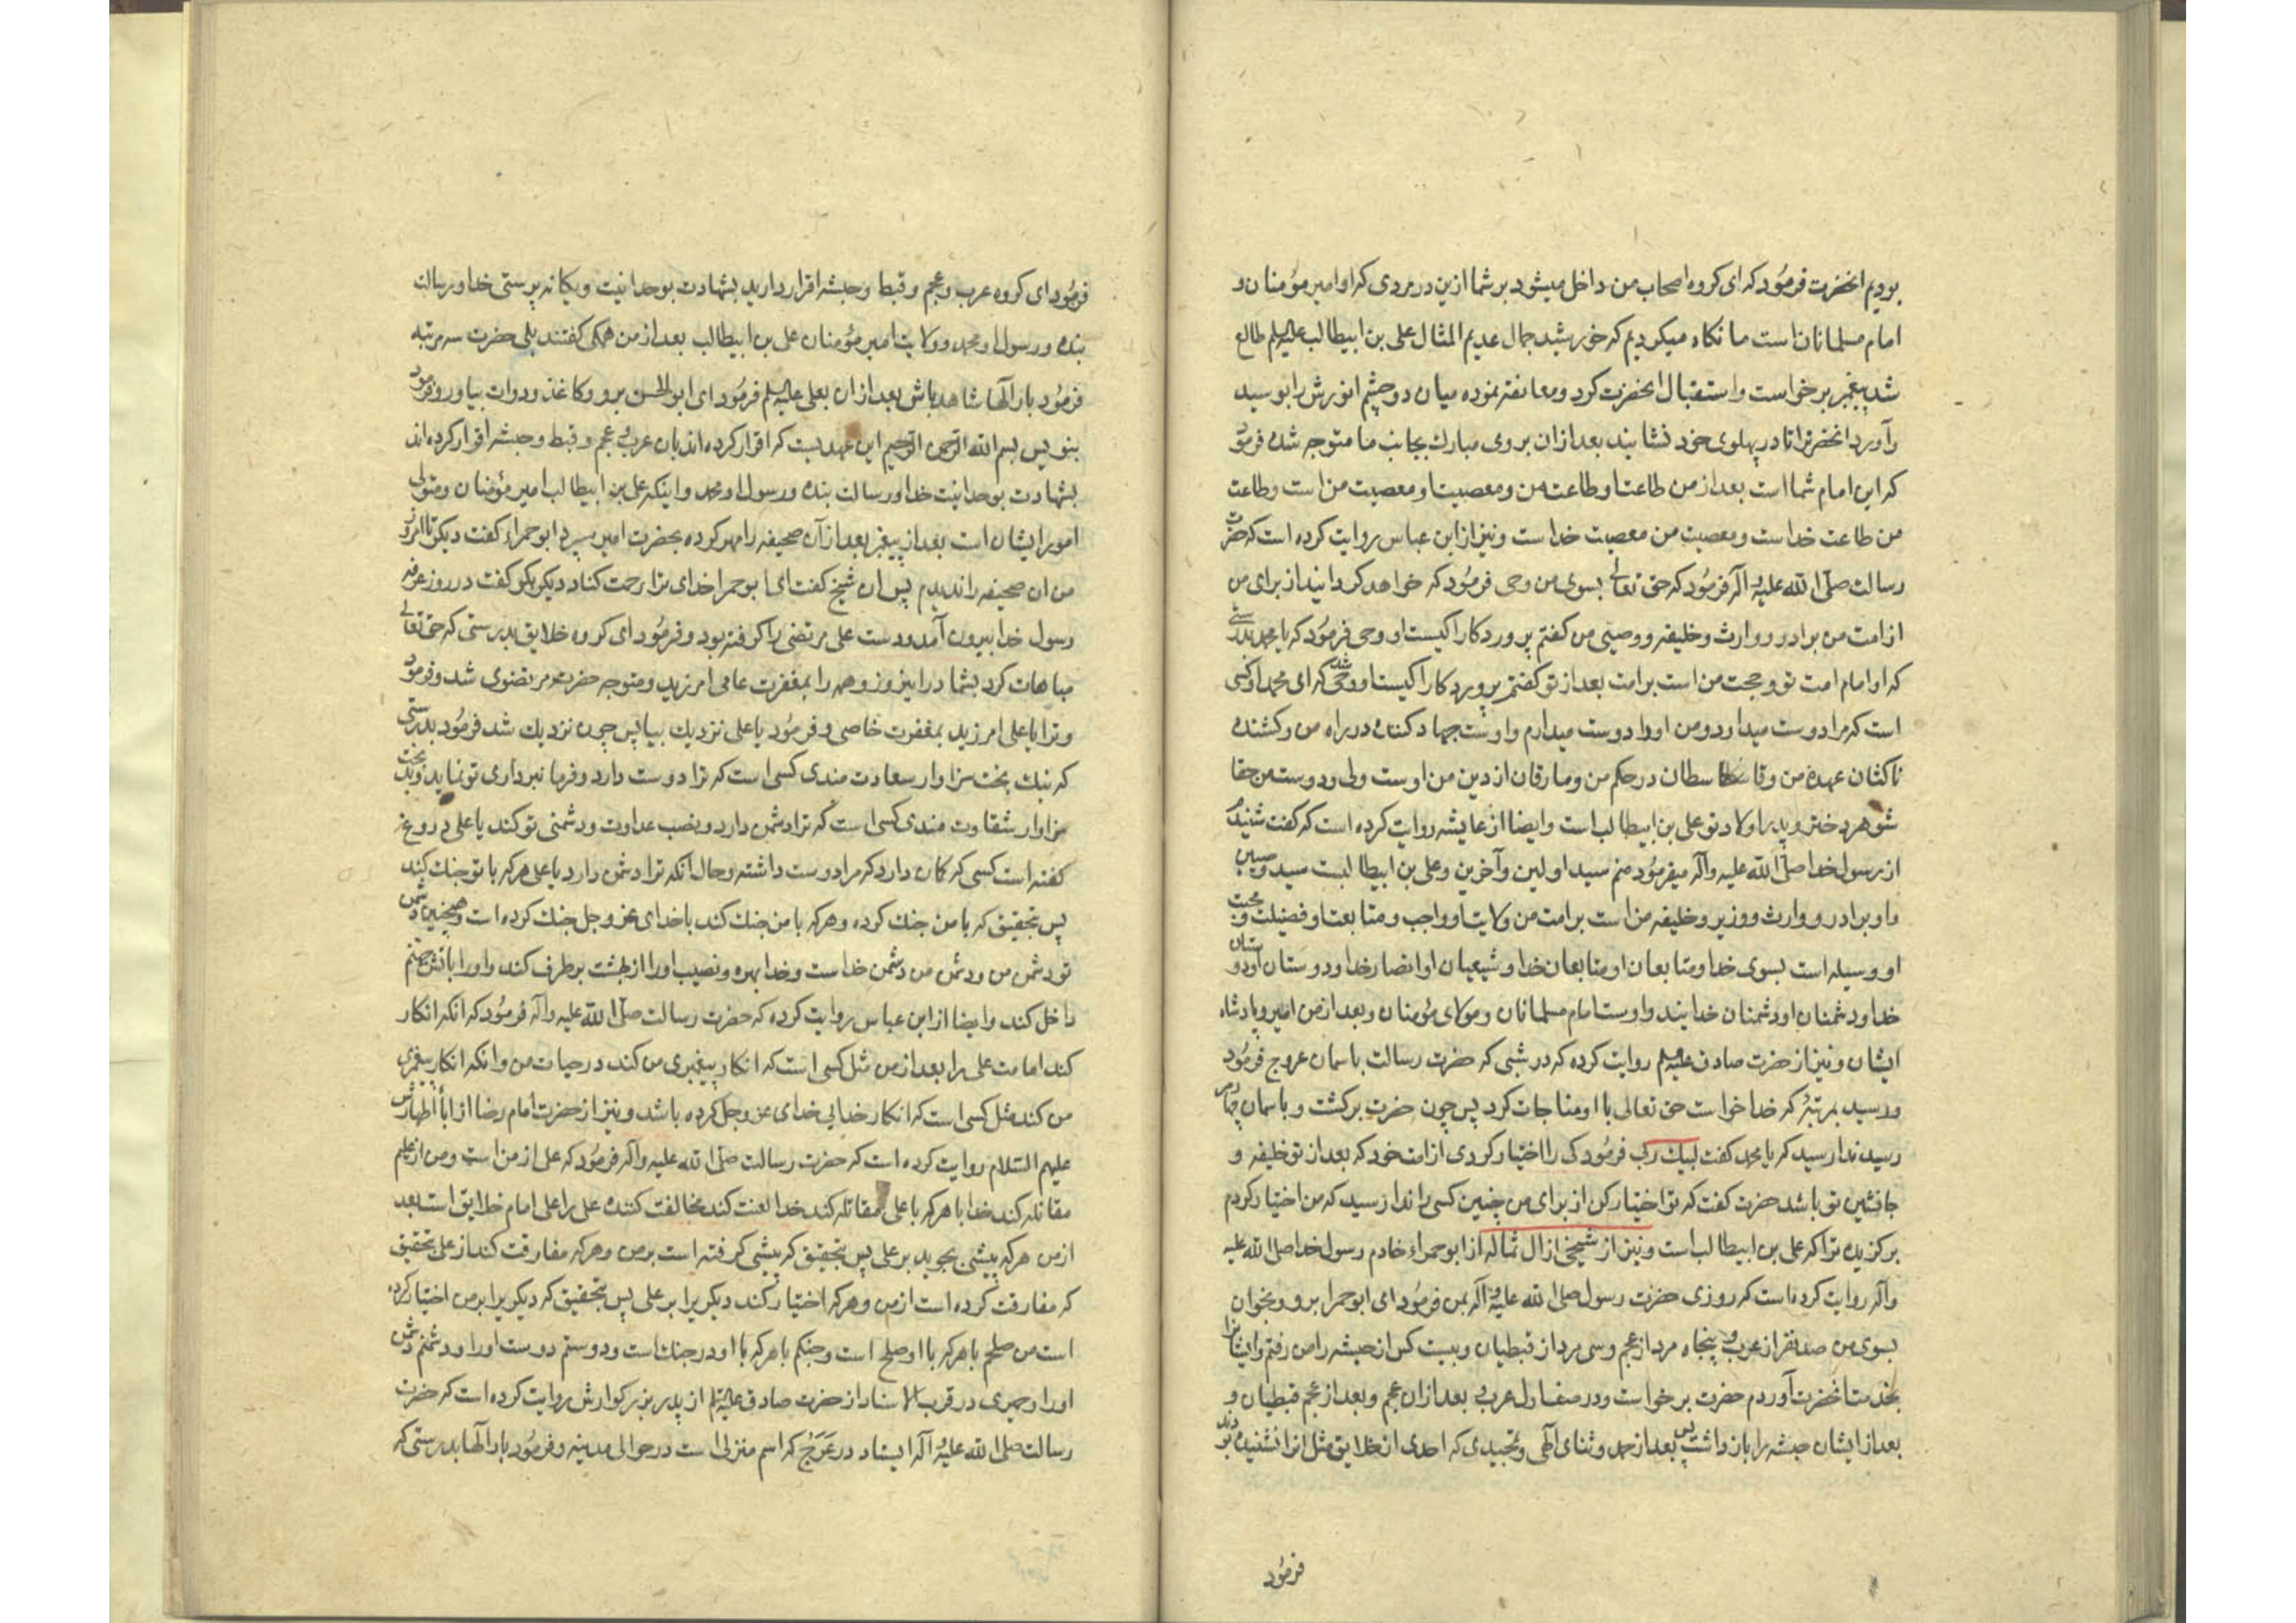 بودیم انحضرت فرمُود که ای کروه اصحاب من داخل میشود بر شما ازین در مردی که او امیر مؤمنان و
امام مسلمانان است ما نکاه میکردیم که خورشید جمال عدیم المثال علی بن ابیطالب علیه‌السلم طالع
شد پیغمبر برخواست و استقبال انحضرت کرد و معانقه نموده میان دو چشم انورش را بوسید
و آورد انحضرترا تا در پهلوی خود نشانید بعد ازان بروی مبارك بجانب ما متوجه شده فرمود
که این امام شما است بعد از من طاعت او طاعت من و معصیت او معصیت من است و طاعت
من طاعت خداست و معصیت من معصیت خداست و نیز از ابن عباس روایت کرده است که حضرت
رسالت صلّی الله علیه و آله فرمُود که حق تعالی بسوی من وحی فرمُود که خواهد کردانید از برای من
از امت من برادر و وارث و خلیفه و وصیی من کفتم پروردکارا کیست او وحی فرمُود که یا محمد بدرستی
که او امام امت تو و حجت من است بر امت بعد از تو کفتم پروردکارا کیست او وحی شد که ای محمد او کسی
است که مرا دوست میدارد و من او را دوست میدارم و اوست جهاد کننده در راه من و کشنده
ناکثان عهد من و قاسطان در حکم من و مارقان از دین من اوست ولی و دوست من حقا
شوهر دختر و پدر اولاد تو علی بن ابیطالب است و ایضا از عایشه روایت کرده است که کفت شنیدم
از رسول خدا صلّی الله علیه و آله میفرمُود منم سید اولین و آخرین و علی بن ابیطالبست سید وصیین
و او برادر و وارث و وزیر و خلیفه من است بر امت من ولایت او واجب و متابعت او فضیلت و محبت
او وسیله است بسوی خدا و متابعان او متابعان خدا و شیعیان او انصار خدا و دوستان او دوستان
خدا و دشمنان او دشمنان خدایند و اوست امام مسلمانان و مولای مؤمنان و بعد از من امیر و پادشاه
ایشان و نیز از حضرت صادق علیه‌السلم روایت کرده که در شبی که حضرت رسالت باسمان عروج فرمُود
و رسید بمرتبهٔ که خدا خواست حق تعالی با او مناجات کرد پس چون حضرت برکشت و باسمان چهارم
رسید ندا رسید که یا محمد کفت لبیك رب فرمُود کی را اختیار کردی از امت خود که بعد از تو خلیفه و
جانشین تو باشد حضرت کفت که تو اختیار کن از برای من چنین کسی را ندا رسید که من اختیار کردم
برکزیده ترا که علی بن ابیطالب است و نیز از شیخی از ال ثماله از ابو حمراء خادم رسول خدا صلی الله علیه
و آله روایت کرده است که روزی حضرت رسول صلی الله علیه و آله بمن فرمُود ای ابو حمرا برو و بخوان
بسوی من صد نفر از عرب و پنجاه مرد از عجم و سی مرد از قبطیان و بیست کس از حبشه را من رفتم و ایشانرا
بخدمت انحضرت آوردم حضرت برخواست و در صف اول عرب بعد ازان عجم و بعد از عجم قبطیان و
بعد از ایشان حبشه را باز داشت پس بعد از حمد و ثنای الٓهی و تمجیدی که احدی از خلایق مثل انرا نشنیده بودند
فرمُود
فرمُود ای کروه عرب و عجم و قبط و حبشه اقرار دارید بشهادت بوحدانیت و یکانه پرستی خدا و رسالت
بنده و رسول او محمد و ولایت امیر مؤمنان علی بن ابیطالب بعد از من همکی کفتند بلی حضرت سه مرتبه
فرمُود بار الٓها شاهد باش بعد ازان بعلی علیه‌السلم فرمُود ای ابوالحسن برو و کاغذ و دوات بیاور و فرمود
بنویس بسم الله الرّحمن الرّحیم این عهدیست که اقرار کرده‌اند بان عرب و عجم و قبط و حبشه اقرار کرده‌اند
بشهادت بوحدانیت خدا و رسالت بنده و رسول او محمد و اینکه علی بن ابیطالب امیر مؤمنان و متولی
امور ایشان است بعد از پیغمبر بعد ازآن صحیفه را مهر کرده بحضرت امیر سپرد ابو حمراء کفت دیکر تا امروز
من ان صحیفه را ندیدم پس ان شیخ کفت ای ابو حمرا خدای ترا رحمت کناد دیکر بکو کفت در روز عرفه
رسول خدا بیرون آمد و دست علی مرتضی را کرفته بود و فرمُود ای کروه خلایق بدرستی که حق تعالی
مباهات کرد بشما در این روز و همه را بمغفرت عامی امرزید و متوجه حضرت مرتضوی شد و فرمود
و ترا یا علی امرزید بمغفرت خاصی و فرمُود یا علی نزدیك بیا پس چون نزدیك شد فرمُود بدرستی
که نیك بخت سزاوار سعادت مندی کسی است که ترا دوست دارد و فرمانبرداری تو نماید و بدبخت
سزاوار شقاوت مندی کسی است که ترا دشمن دارد و نصب عداوت و دشمنی تو کند یا علی دروغ
کفته است کسی که کمان دارد که مرا دوست داشته و حال انکه ترا دشمن دارد یا علی هر که با تو جنك کند
پس بتحقیق که با من جنك کرده و هر که با من جنك کند با خدای عز و جل جنك کرده است و همچنین دشمن
تو دشمن من و دشمن من دشمن خداست و خدا بهره و نصیب او را از بهشت برطرف کند و او را باتش جهنم
داخل کند و ایضا از ابن عباس روایت کرده که حضرت رسالت صلّی الله علیه و آله فرمُود که انکه انکار
کند امامت علی را بعد از من مثل کسی است که انکار پیغمبری من کند در حیات من و انکه انکار پیغمبری
من کند مثل کسی است که انکار خدایی خدای عز و جل کرده باشد و نیز از حضرت امام رضا از اباء اطهارش
علیهم السّلام روایت کرده است که حضرت رسالت صلّی الله علیه و آله فرمُود که علی از من است و من از علیم
مقاتله کند خدا با هر که با علی مقاتله کند خدا لعنت کند مخالفت کننده علی را علی امام خلایق است بعد
از من هر که پیشی بجوید بر علی پس بتحقیق که پیشی کرفته است بر من و هر که مفارقت کند از علی بتحقیق
که مفارقت کرده است از من و هر که اختیار کند دیکریرا بر علی پس بتحقیق که دیکریرا بر من اختیار کرده
است من صلحم با هر که با او صلح است و جنکم با هر که با او در جنك است و دوستم دوست او را و دشمنم دشمن
او را و حمیری در قرب الاسناد از حضرت صادق علیه‌السلم از پدر بزرکوارش روایت کرده است که حضرت
رسالت صلی الله علیه و آله ایستاد در عَرَج که اسم منزلی است در حوالی مدینه و فرمُود بار الٓها بدرستی که